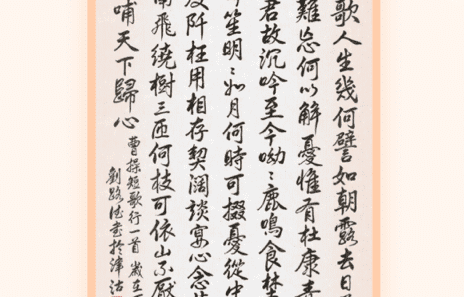 歌人生幾何譬如朝露去日
難忘何以解憂惟有杜康青
君故沉吟至今呦〻鹿鳴食
笙明〻如月何時可掇憂從中
阡枉用相存契闊談宴心念
南飛繞樹三匝何枝可依山不厭
哺天下歸心
曹操短歌行一首 歲在
劉路德書於津沽